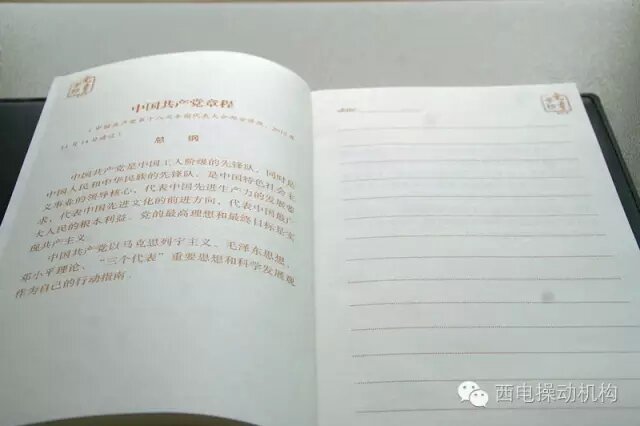 中国共产党章程
(中国共产党第十八次全国代表大会部分修改，2012年
11月14日通过)
总 纲
中国共产党是中国工人阶级的先锋队，同时是
中国人民和中华民族的先锋队，是中国特色社会主
义事业的领导核心，代表中国先进生产力的发展要
求，代表中国先进文化的前进方向，代表中国最广
大人民的根本利益。党的最高理想和最终目标是实
现共产主义。
中国共产党以马克思列宁主义、毛泽东思想、
邓小平理论、“三个代表”重要思想和科学发展观
作为自己的行动指南。
西电操动机构